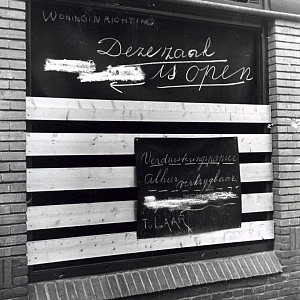 WONINGINRICHTING
Deze zaak
is open
Verduisteringspapier
Alhier verkrygbaar